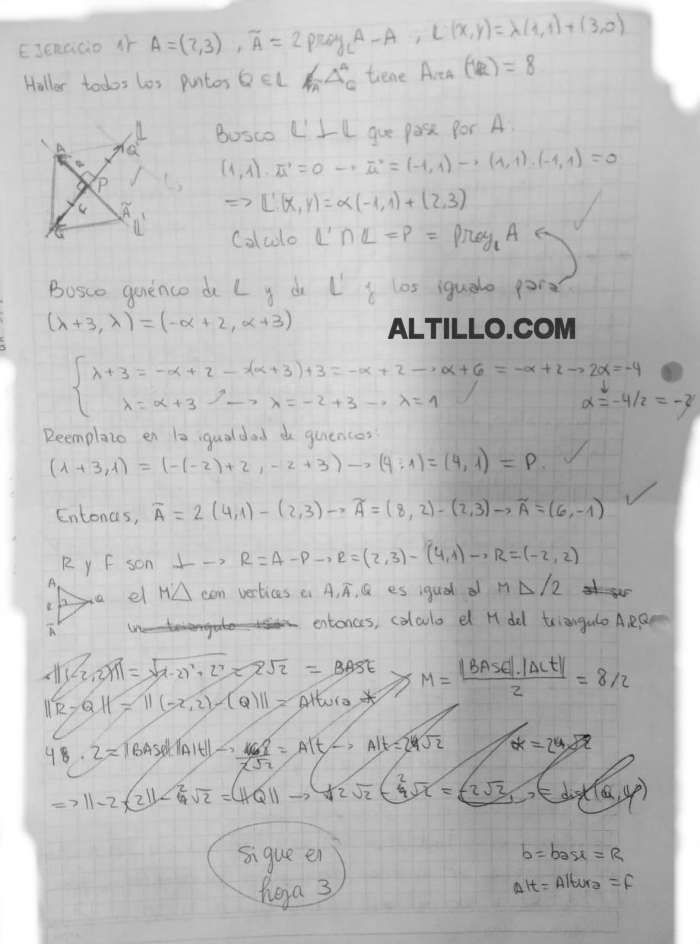 EJERCICIO 1) A=(2,3) , Ã = 2 proy_L A - A , L:(x,y)=λ(1,1)+(3,0)
Hallar todos los puntos Q ∈ L tiene Área = 8
A
L
Q
P
Ã
L'
Busco L' ⊥ L que pase por A:
(1,1).ū'=0 → ū'=(-1,1) → (1,1).(-1,1)=0
=> L':(x,y)=α(-1,1)+(2,3)
Calculo L' ∩ L = P = proy_L A
Busco genérico de L y de L' y los igualo para
(λ+3, λ) = (-α+2, α+3)
ALTILLO.COM
λ+3 = -α+2 → (α+3)+3 = -α+2 → α+6 = -α+2 → 2α=-4
λ = α+3 → λ = -2+3 → λ=1 α=-4/2=-2
Reemplazo en la igualdad de genericos:
(1+3,1) = (-(-2)+2, -2+3) → (4;1)=(4,1) = P.
Entonces, Ã = 2(4,1)-(2,3) → Ã=(8,2)-(2,3) → Ã=(6,-1)
R y F son ⊥ → R=A-P → R=(2,3)-(4,1) → R=(-2,2)
A
R
Q
Ã
el M△ con vertices en A,Ã,Q es igual al M ◺/2
un triangulo entonces, calculo el M del triangulo A,R,Q
||(-2,2)|| = √(-2)²+2² = 2√2 = BASE
M = |BASE|.|Alt| / 2 = 8/2
||R-Q|| = ||(-2,2)-(Q)|| = Altura *
. 2 = |BASE|.|Alt| → = Alt → Alt=
=> = ||Q|| →
Sigue en
hoja 3
b=base=R
Alt=Altura=F